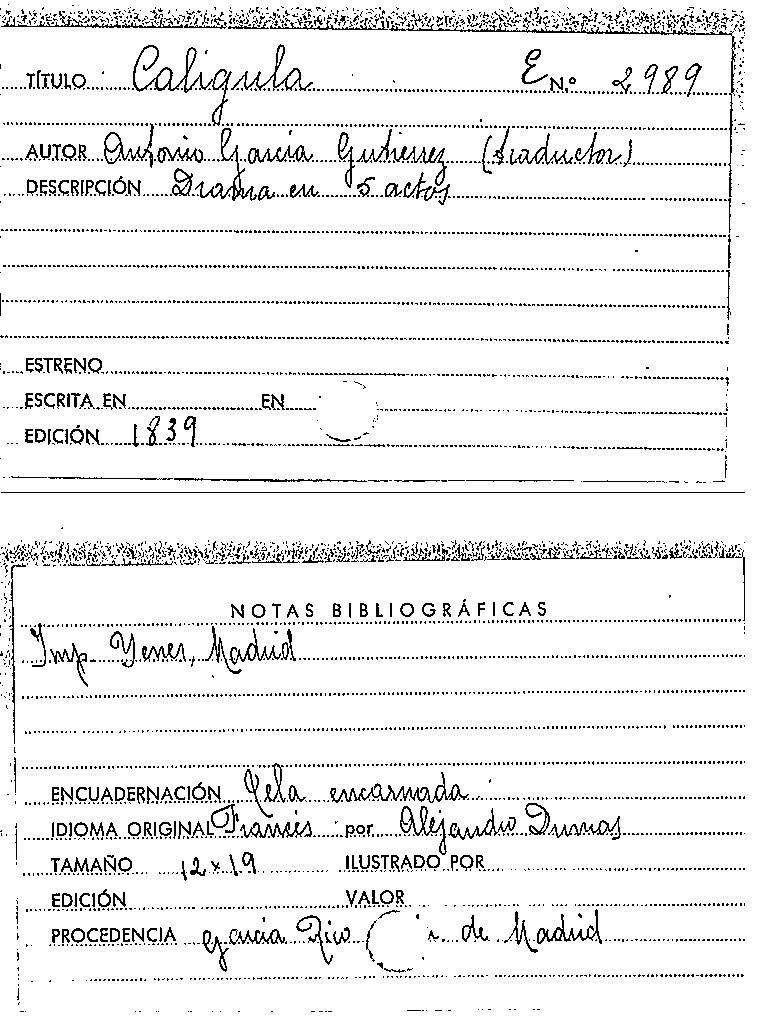 TÍTULO Caligula E N.º 2989
AUTOR Antonio García Gutierrez (traductor)
DESCRIPCIÓN Drama en 5 actos
ESTRENO
ESCRITA EN EN
EDICIÓN 1839
NOTAS BIBLIOGRÁFICAS
Imp. Yenes, Madrid
ENCUADERNACIÓN Tela encarnada
IDIOMA ORIGINAL Francés por Alejandro Dumas
TAMAÑO 12 x 19 ILUSTRADO POR
EDICIÓN VALOR
PROCEDENCIA García Rico de Madrid